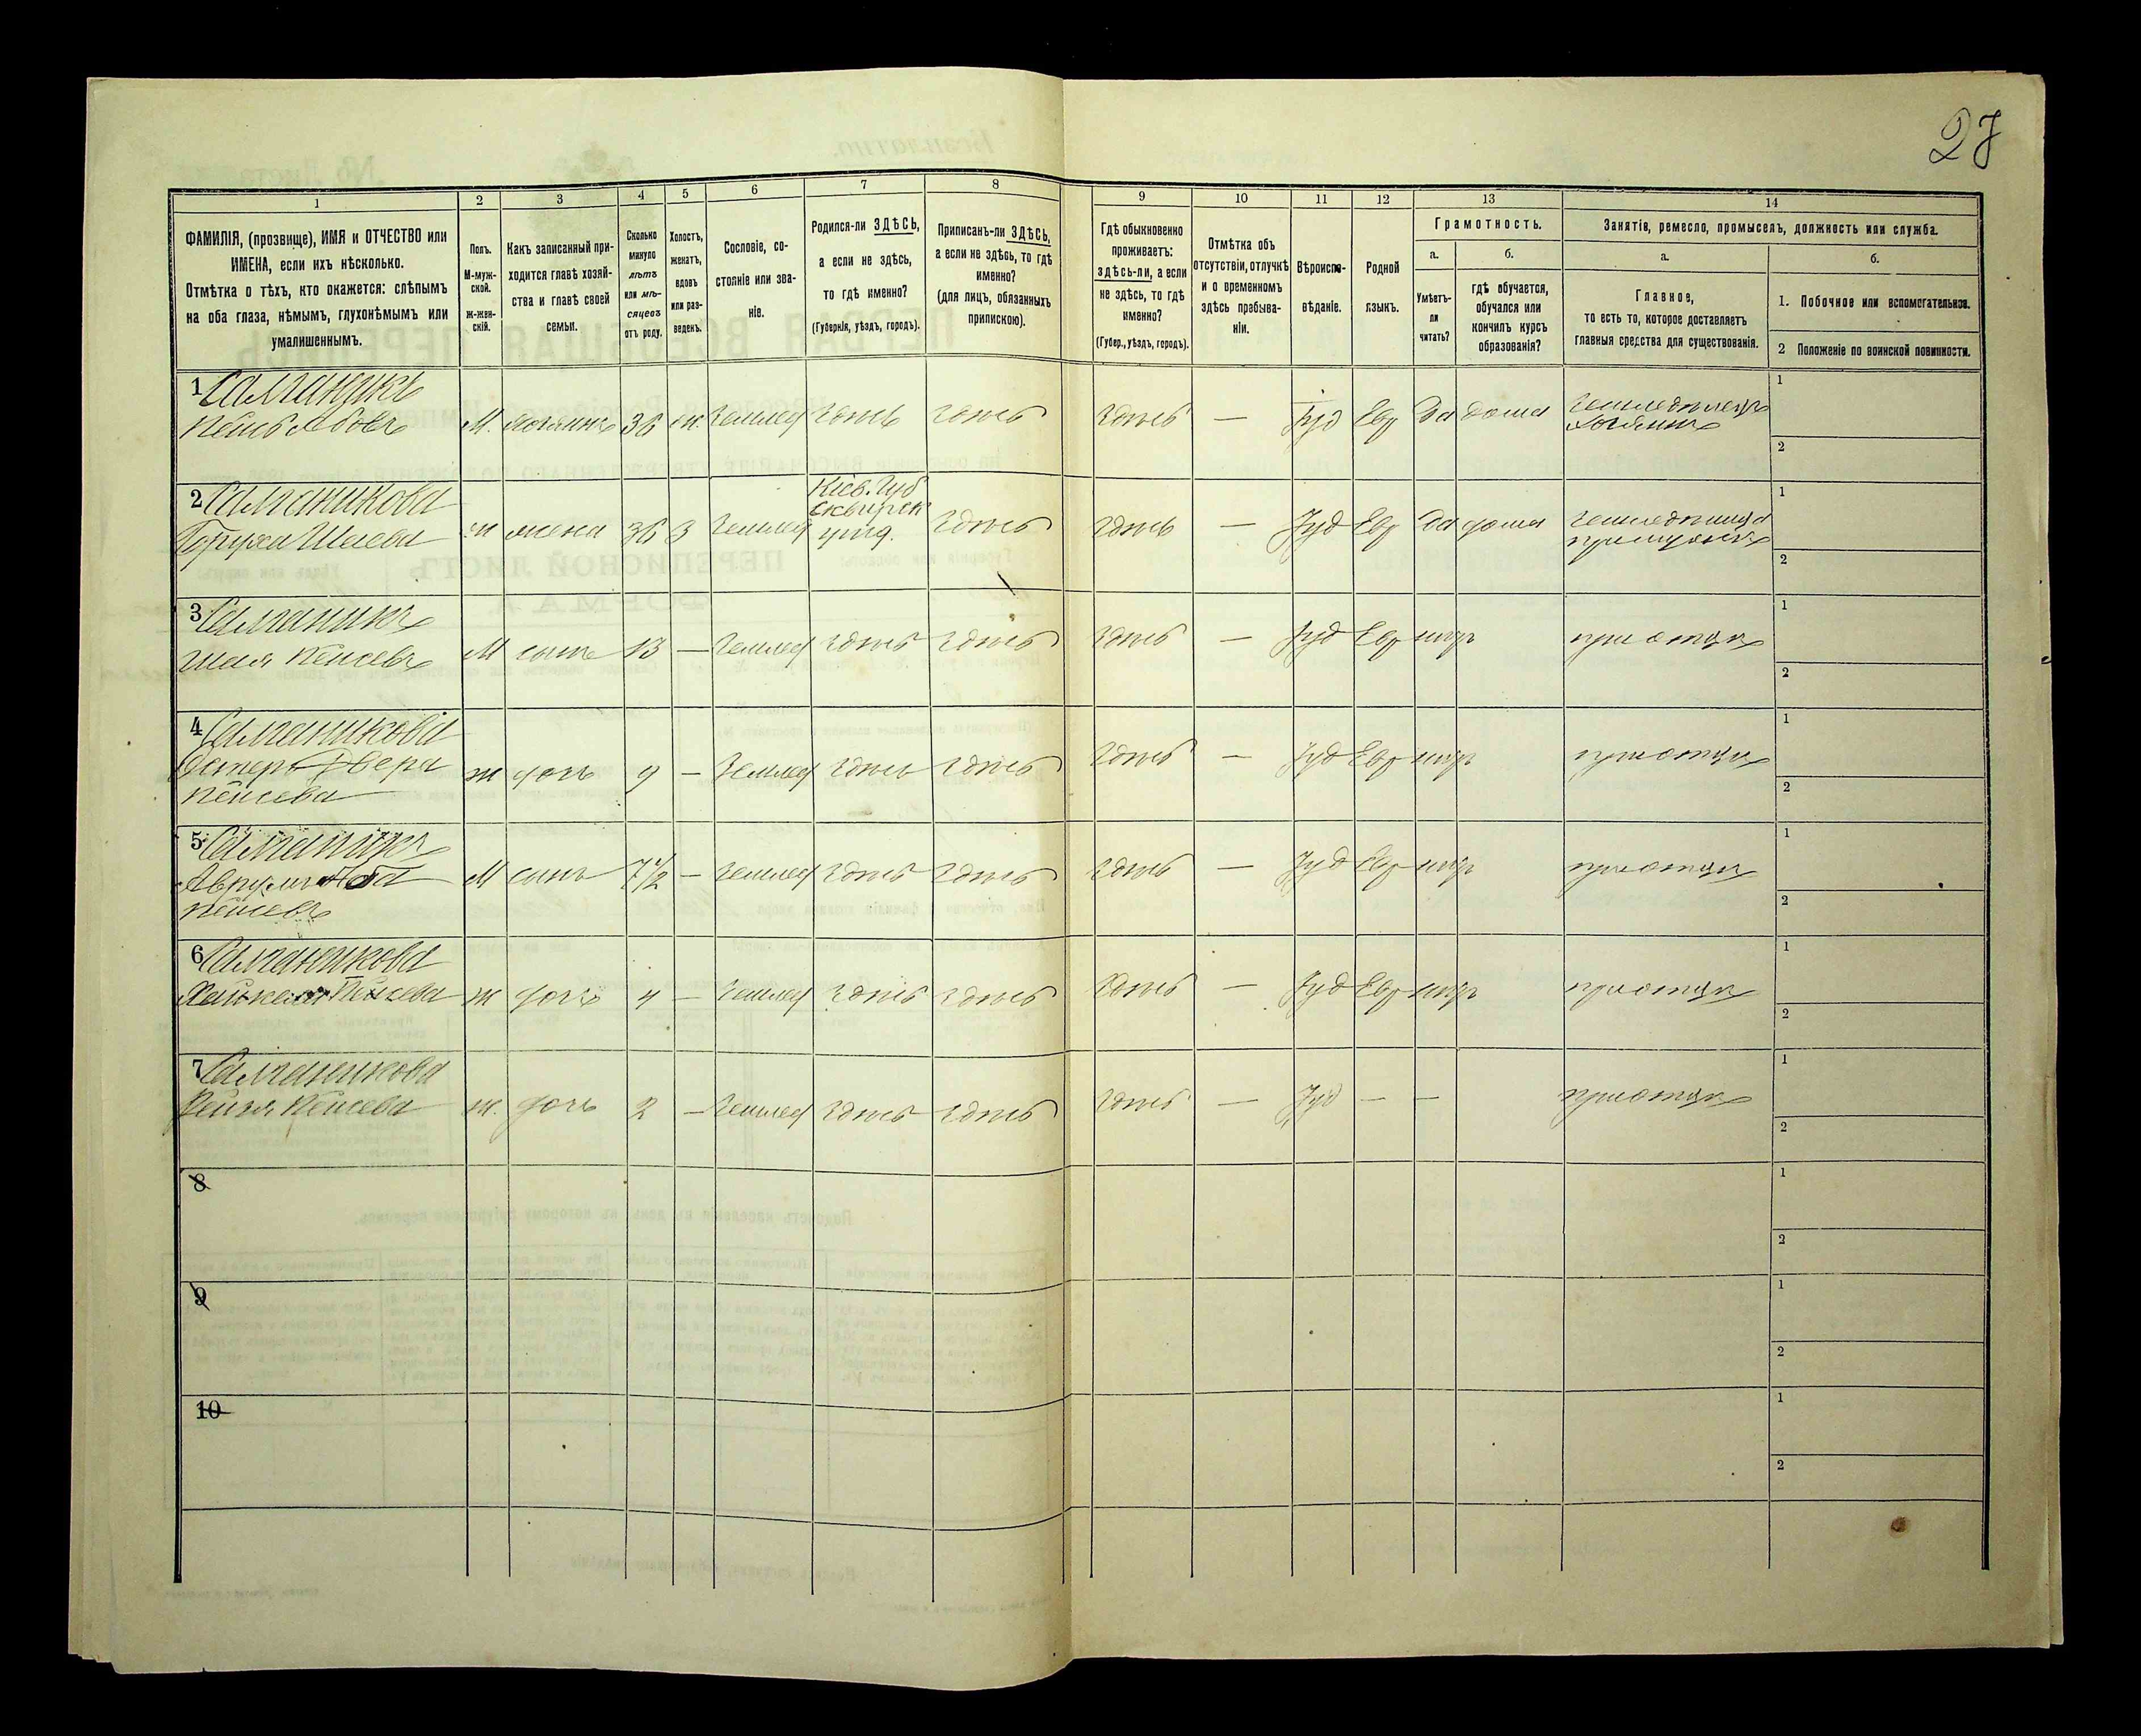 27
1 2 3 4 5 6 7 8 9 10 11 12 13 14
ФАМИЛІЯ, (прозвище), ИМЯ и ОТЧЕСТВО или
ИМЕНА, если ихъ нѣсколько.
Отмѣтка о тѣхъ, кто окажется: слѣпымъ
на оба глаза, нѣмымъ, глухонѣмымъ или
умалишеннымъ.
Полъ.
М-муж-
ской.
Ж-жен-
скій.
Какъ записанный при-
ходится главѣ хозяй-
ства и главѣ своей
семьи.
Сколько
минуло
лѣтъ
или мѣ-
сяцевъ
отъ роду.
Холостъ,
женатъ,
вдовъ
или раз-
веденъ.
Сословіе, со-
стояніе или зва-
ніе.
Родился-ли ЗДѢСЬ,
а если не здѣсь,
то гдѣ именно?
(Губернія, уѣздъ, городъ).
Приписанъ-ли ЗДѢСЬ,
а если не здѣсь, то гдѣ
именно?
(для лицъ, обязанныхъ
припискою).
Гдѣ обыкновенно
проживаетъ:
здѣсь-ли, а если
не здѣсь, то гдѣ
именно?
(Губер., уѣздъ, городъ).
Отмѣтка объ
отсутствіи, отлучкѣ
и о временномъ
здѣсь пребыва-
ніи.
Вѣроиспо-
вѣданіе.
Родной
языкъ.
Грамотность.
а.
Умѣетъ-
ли
читать?
б.
гдѣ обучается,
обучался или
кончилъ курсъ
образованія?
Занятіе, ремесло, промыселъ, должность или служба.
а.
Главное,
то есть то, которое доставляетъ
главныя средства для существованія.
б.
1. Побочное или вспомогательное.
2 Положеніе по воинской повинности.
1
М. хозяинъ 36 ж. Землед здѣсь здѣсь здѣсь — Іуд Евр Да дома земледѣлецъ
хозяинъ
1
2
2 Салганикова Кіев. Губ
Сквирск
Шаева ж жена 36 З Землед уѣзд. здѣсь здѣсь — Іуд Евр Да дома
1
2
3 Салганикъ
Шая Кейсевъ М сынъ 13 — Землед здѣсь здѣсь здѣсь — Іуд Евр нѣтъ при отцѣ
1
2
4 Салганикова
Двера
Кейсева ж дочь 9 — Землед здѣсь здѣсь здѣсь — Іуд Евр нѣтъ при отцѣ
1
2
5 Салганикъ
Аврумъ
Кейсевъ М сынъ 7½ — Землед здѣсь здѣсь здѣсь — Іуд Евр нѣтъ при отцѣ
1
2
6 Салганикова
Кейсева ж дочь 4 — Землед здѣсь здѣсь здѣсь — Іуд Евр нѣтъ при отцѣ
1
2
7 Салганикова
Кейсева ж. дочь 2 — Землед здѣсь здѣсь здѣсь — Іуд — — при отцѣ
1
2
8
1
2
9
1
2
10
1
2